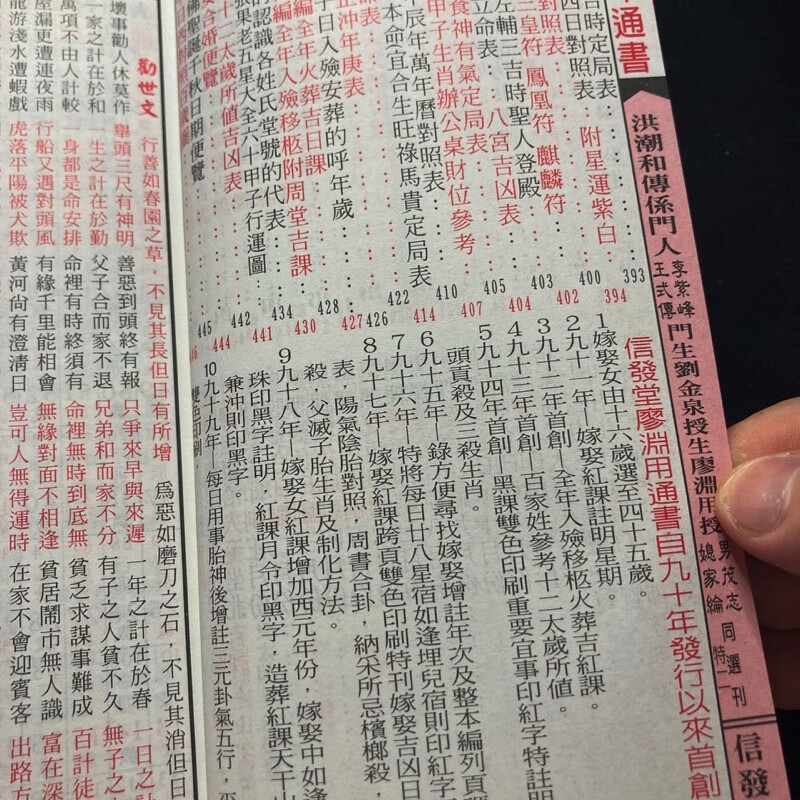 通書
洪潮和傳係門人
李紫峰
王式傳
門生劉金泉授生廖淵用授
男茂志
媳家綸
同選
刊
信發
百時定局表 393
四日對照表 附星運紫白 394
對照表 400
三皇符 鳳凰符 麒麟符 402
左輔三吉時聖人登殿 403
立命表 八宮吉凶表 404
食神有氣定局表 405
甲子生肖辦公桌財位參考 407
辰年萬年曆對照表 410
本命宜合生旺祿馬貴定局表 414
命表 422
正沖年庚表 426
十日入殮安葬的呼年歲 427
編全年火葬吉日課 428
編全年入殮移柩附周堂吉課 430
的認識各姓氏堂號的代表 434
張果老五星大全六十甲子行運圖 441
十二太歲所值吉凶表 442
安合婚便覽 444
佛聖誕千秋日期便覽 445
信發堂廖淵用通書自九十年發行以來首創
1嫁娶女由十六歲選至四十五歲。
2九十一年—嫁娶紅課註明星期。
3九十二年首創—全年入殮移柩火葬吉紅課。
4九十三年首創 百家姓參考十二太歲所值。
5九十四年首創—黑課雙色印刷重要宜事印紅字特註明
頭頁殺及三殺生肖。
6九十五年—錄方便尋找嫁娶增註年次及整本編列頁
7九十六年—特將每日廿八星宿如逢埋兒宿則印紅字
8九十七年—嫁娶紅課跨頁雙色印刷特刊嫁娶吉凶日
表，陽氣陰胎對照，周書合卦，納采所忌檳榔殺，
殺，父滅子胎生肖及制化方法。
9九十八年—嫁娶女紅課增加西元年份，嫁娶中如逢
珠印黑字註明，紅課月令印黑字，造葬紅課天干
兼沖則印黑字。
10九十九年—每日用事胎神後增註三元卦氣五行，
雙色印刷。
勸世文
行善如春園之草，不見其長但日有所增
為惡如磨刀之石，不見其消但日
舉頭三尺有神明 善惡到頭終有報 只爭來早與來遲 一年之計在於春 一日之計
壞事勸人休莫作
一家之計在於和 一生之計在於勤 父子合而家不退 兄弟和而家不分 有子之人貧不久 無子之人
萬項不由人計較 一身都是命安排 命裡有時終須有 命裡無時到底無 貧乏求謀事難成 百計徒
屋漏更遭連夜雨 行船又遇對頭風 有緣千里能相會 無緣對面不相逢 貧居鬧市無人識 富在深
龍游淺水遭蝦戲 虎落平陽被犬欺 黃河尚有澄清日 豈可人無得運時 在家不會迎賓客 出路方